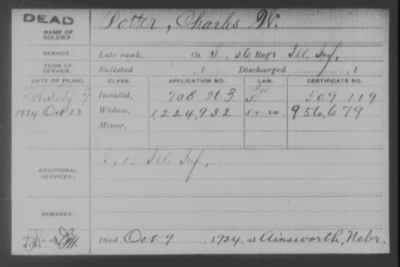 DEAD
NAME OF SOLDIER: Potter, Charles W.
SERVICE: Late rank, Co. I, 56 Reg't Ill. Inf.
TERM OF SERVICE: Enlisted , 1 Discharged , 1
DATE OF FILING. CLASS. APPLICATION NO. LAW. CERTIFICATE NO.
July 7 Invalid, 708,263 509 119
1924 Oct 23 Widow, 1,224,932 956,679
Minor,
ADDITIONAL SERVICES: Ill Inf,
REMARKS:
Died Oct 9 , 1924, at Ainsworth, Nebr.